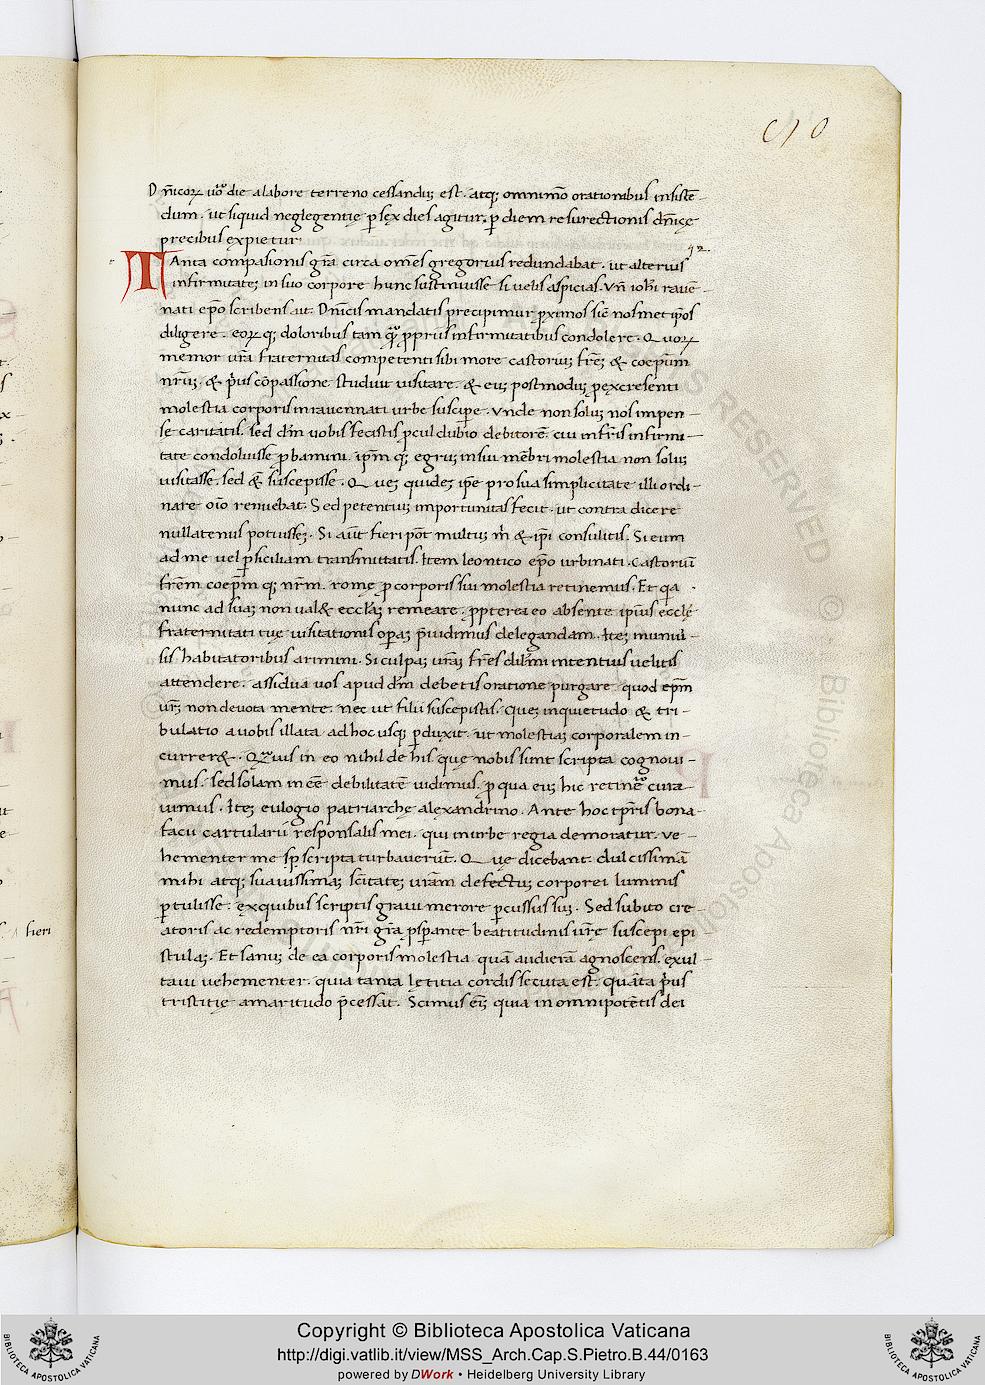 C10
Dn̄icorꝝ ūo die a labore terreno cessanduꝫ est. atqꝫ omnimo orationibus insistē-
dum. ut siquid neglegentię p sex dies agitur, p diem resurectionis dn̄icę
precibus expietur.
42.
Tanta compasionis gr̄a circa om̄es gregorius redundabat. ut alterius
infirmitateꝫ in suo corpore hunc sustinuisse si velis aspicias. Vn̄ ioh̄i rauē-
nati ep̄o scribens ait. Dn̄icis mandatis precipimur p̱ximos sic̄ nosmet ip̄os
diligere. eorꝝ qꝫ doloribus tam qꝫ p̱priis infirmitatibus condolere. Quorꝝ
memor ur̄a fraternitas competenti sibi more castoriuꝫ fr̄eꝫ & coep̄um
nr̄uꝫ. & p̄us cōpassione studuit uisitare. & eiꝫ postmoduꝫ p̱excresenti
molestia corporis in rauennati urbe suscipe. Vnde non soluꝫ nos impen-
se caritatis. sed dn̄m uobis fecistis p̱cul dubio debitorē. cui in fr̄is infirmi-
tate condoluisse p̱bamini. ip̄m qꝫ egruꝫ in sui mēbri molestia non soluꝫ
uisitasse. sed & suscepisse. Queꝫ quideꝫ ip̄e pro sua simplicitate illi ordi-
nare oīo renuebat. Sed petentiuꝫ importunitas fecit. ut contra dicere
nullatenus potuisseꝫ. Si aut̄ fieri pōt multuꝫ m̄ & ip̄i consulitis. Si eum
ad me uel p siciliam transmittatis. Item leontico ep̄o urbinati. Castoriū
fr̄em coep̄m qꝫ nr̄m. romę p corporis sui molestia retinemus. Et qa
nunc ad suaꝫ non ual& eccl̄aꝫ remeare. p̱pterea eo absente ipius eccl̄ę
fraternitati tuę uisitationis op̄aꝫ p̄uidimus delegandam. Iteꝫ muniti-
sis habitatoribus arimini. Si culpaꝫ ur̄aꝫ fr̄es dil̄mi intentius uelitis
attendere. assidua uos apud dn̄m debetis oratione purgare. quod ep̄m
ur̄ꝫ non deuota mente. nec ut filii suscepistis. Queꝫ inquietudo & tri-
bulatio a uobis illata ad hoc usqꝫ pduxit. ut molestiaꝫ corporalem in-
currer&. Qꝫuis in eo nihil de his que nobis sunt scripta cognoui-
mus. sed solam in eē debilitatē uidimus. p qua eiꝫ hic retinēo cura-
uimus. Iteꝫ eulogio patriarchę alexandrino. Ante hoc tp̄ris bona-
facii cartularii responsalis mei. qui in urbe regia demoratur. ve-
hementer me sp̄ scripta turbauerūt. Quę dicebant dulcissimā
mihi atqꝫ suauissimaꝫ sc̄itateꝫ ur̄am defectuꝫ corporei luminis
ptulisse. ex quibus scriptis graui merore pcussus suꝫ. Sed subito cre-
atoris ac redemptoris nr̄i gr̄a p̱sp̱ante beatitudinis ur̄ę suscepi epi
stulaꝫ. Et sanuꝫ de ea corporis molestia quā audierā agnoscens. exul-
taui uehementer. quia tanta lętitia cordis secuta est. quāta p̄us
tristitię amaritudo p̄cessat. Scimus eīꝫ quia in omnipotētis dei
fieri
Copyright © Biblioteca Apostolica Vaticana
http://digi.vatlib.it/view/MSS_Arch.Cap.S.Pietro.B.44/0163
powered by DWork • Heidelberg University Library